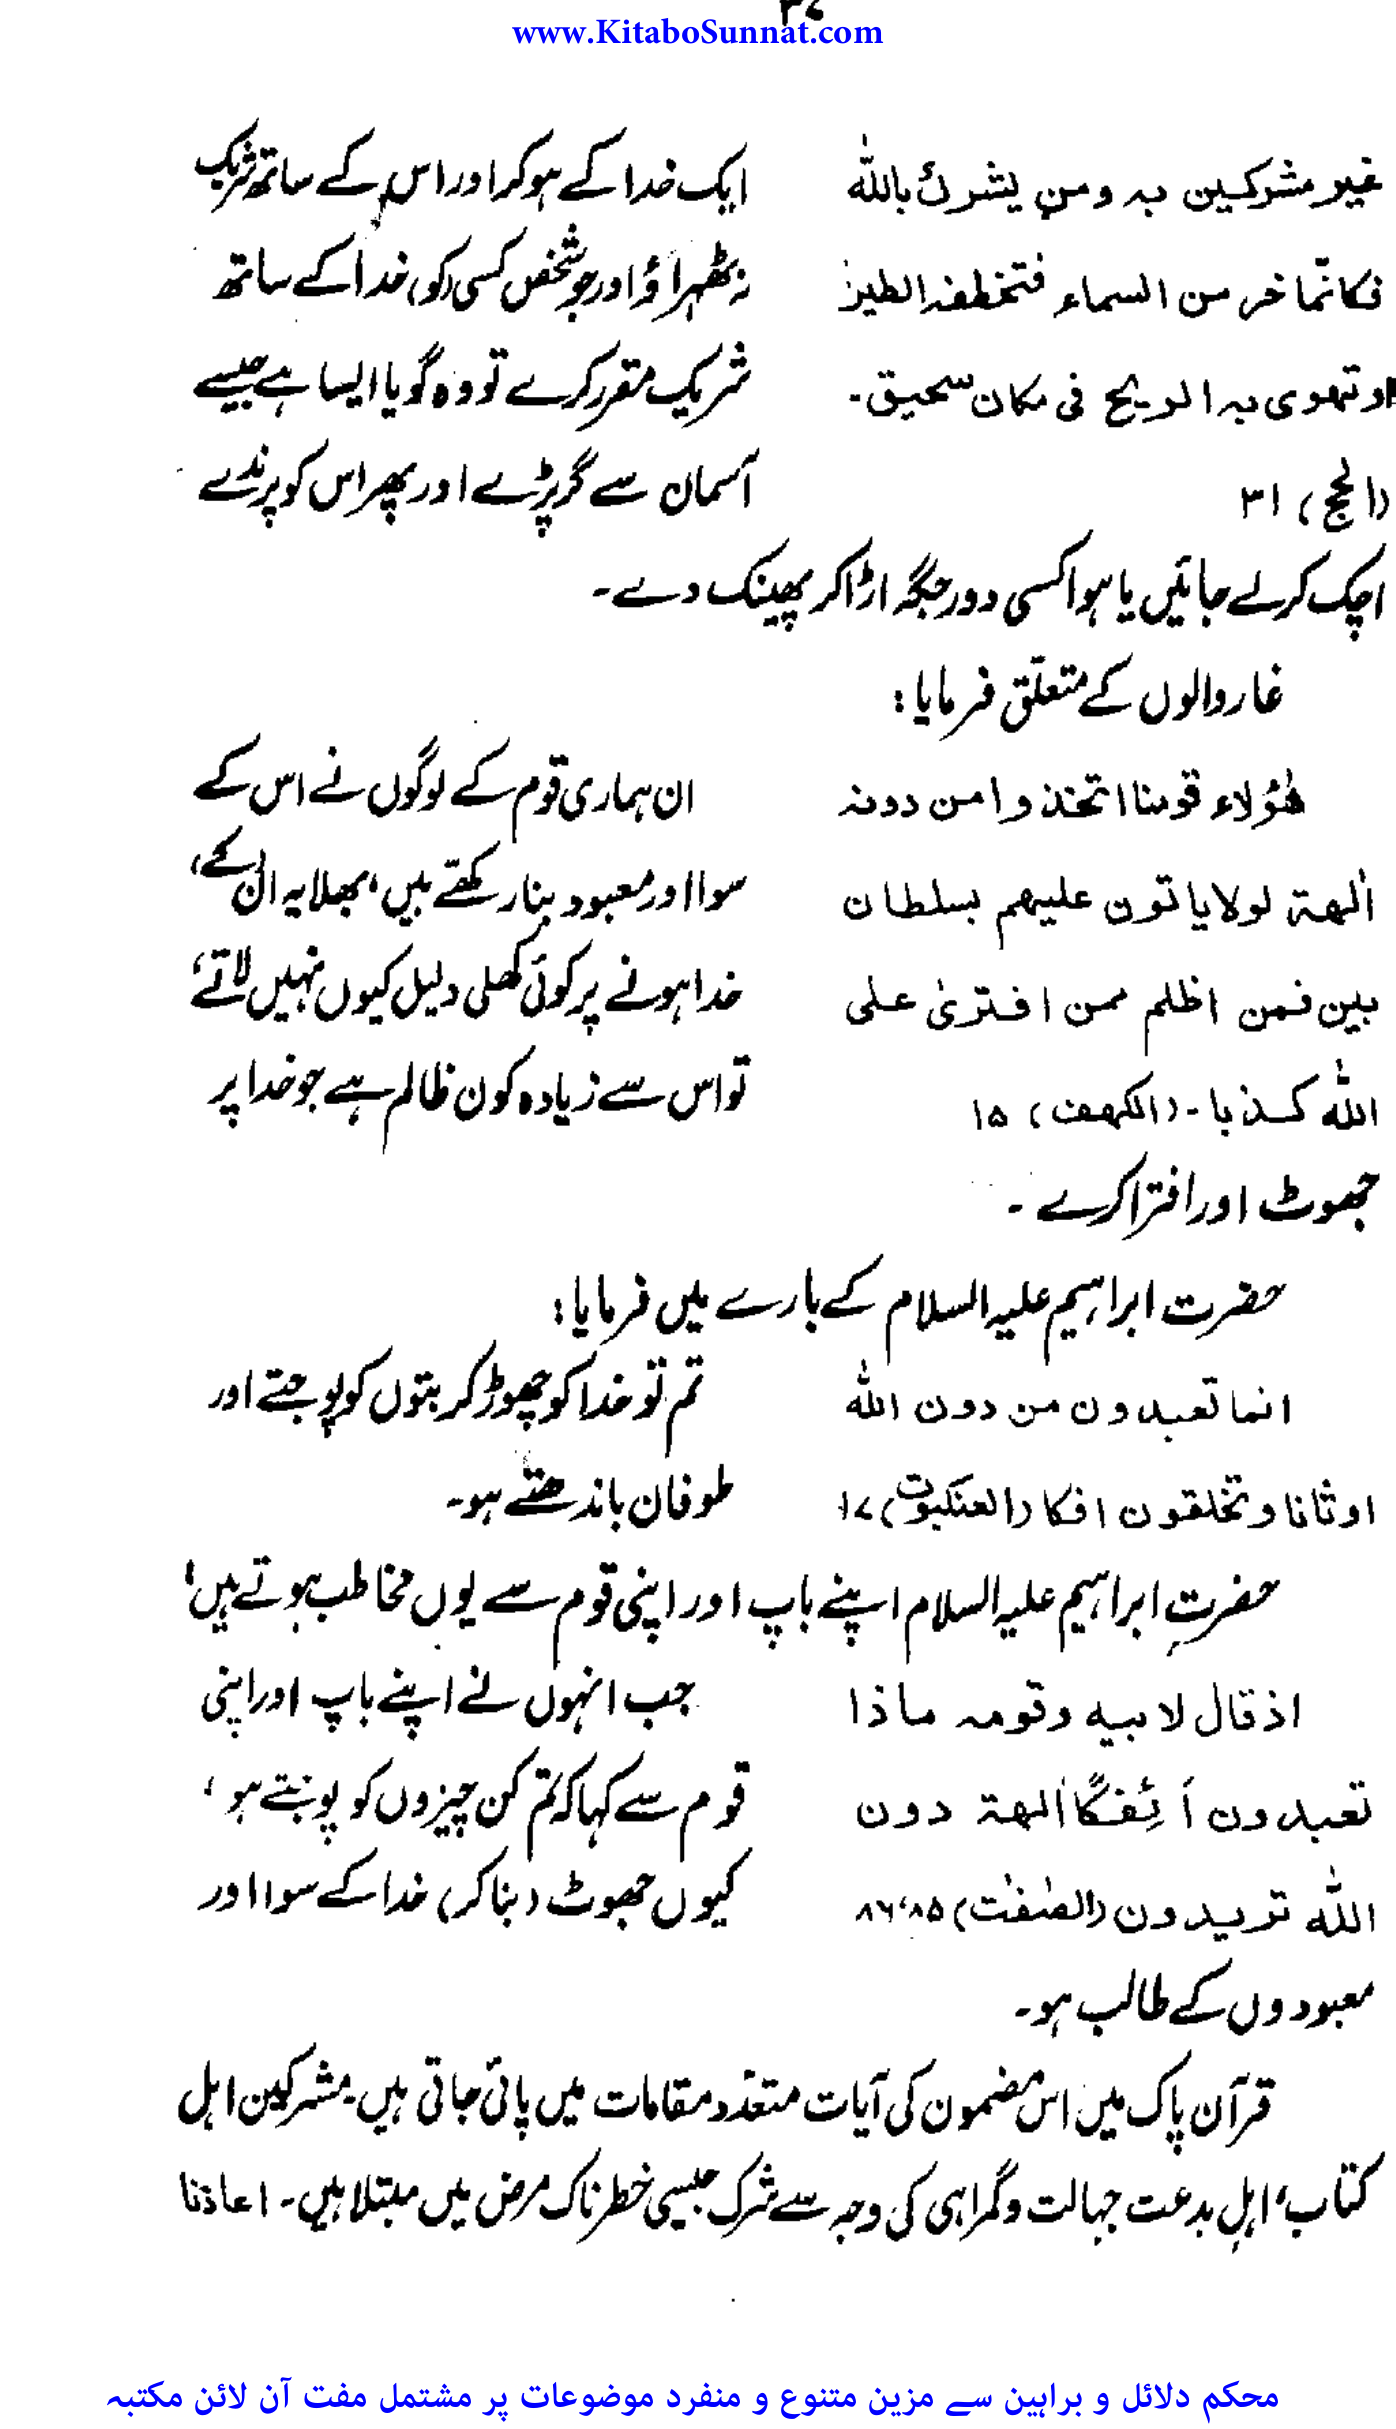 ۳۷
www.KitaboSunnat.com
غیر مشرکین به ومن یشرك باللّٰه ایک خدا کے ہو کر اور اس کے ساتھ شریک
فکانّما خر من السماء فتخطفه الطیر نہ ٹھہراؤ اور جو شخص کسی (کو) خدا کے ساتھ
او تهوی به الریح فی مکان سحیق۔ شریک مقرر کرے تو وہ گویا ایسا ہے جیسے
(الحج) ۳۱ آسمان سے گر پڑے اور پھر اس کو پرندے
اچک کر لے جائیں یا ہوا کسی دور جگہ اڑا کر پھینک دے۔
غار والوں کے متعلق فرمایا:
هٰؤلاء قومنا اتخذوا من دونه ان ہماری قوم کے لوگوں نے اس کے
اٰلهة لولا یاتون علیهم بسلطان سوا اور معبود بنا رکھتے ہیں، بھلا یہ ان (کے)
بین فمن اظلم ممن افتریٰ علی خدا ہونے پر کوئی کھلی دلیل کیوں نہیں لاتے،
اللّٰه کذبا۔ (الکهف) ۱۵ تو اس سے زیادہ کون ظالم ہے جو خدا پر
جھوٹ اور افترا کرے ۔
حضرت ابراہیم علیہ السلام کے بارے میں فرمایا:
انما تعبدون من دون اللّٰه تم تو خدا کو چھوڑ کر بتوں کو پوجتے اور
اوثانا وتخلقون افکا (العنکبوت) ۱۷ طوفان باندھتے ہو۔
حضرتِ ابراہیم علیہ السلام اپنے باپ اور اپنی قوم سے یوں مخاطب ہوتے ہیں،
اذ قال لابیه وقومه ماذا جب انہوں نے اپنے باپ اور اپنی
تعبدون اَئِفکًا اٰلهة دون قوم سے کہا کہ تم کن چیزوں کو پوجتے ہو،
اللّٰه تریدون (الصٰفٰت) ۸۵،۸۶ کیوں جھوٹ (بنا کر) خدا کے سوا اور
معبودوں کے طالب ہو۔
قرآن پاک میں اس مضمون کی آیات متعدّد مقامات میں پائی جاتی ہیں۔ مشرکین اہل
کتاب، اہلِ بدعت جہالت و گمراہی کی وجہ سے شرک جیسی خطرناک مرض میں مبتلا ہیں۔ اعاذنا
محکم دلائل و براہین سے مزین متنوع و منفرد موضوعات پر مشتمل مفت آن لائن مکتبہ